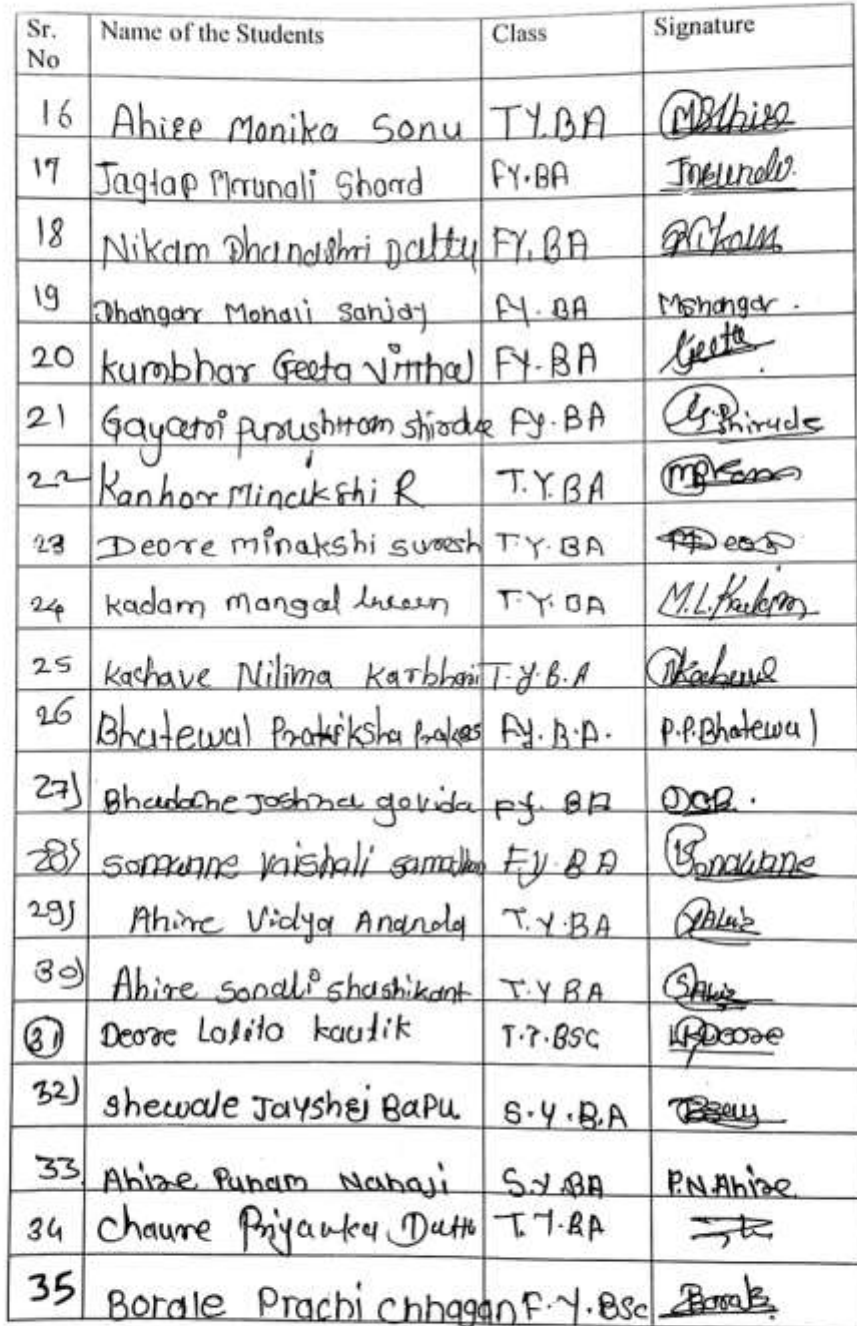 Sr. No Name of the Students Class Signature
16 Ahire Monika Sonu T.Y.BA
17 Jagtap Mrunali Sharad FY.BA
18 Nikam Dhanashri Dattu FY.BA
19 Dhangar Monali Sanjay FY.BA Mshangar.
20 Kumbhar Geeta Vitthal FY.BA Geeta
21 Gayatri Purushttom shirude FY.BA G.Shirude
22 Kanhor Minakshi R T.Y.BA
23 Deore minakshi suresh T.Y.BA
24 kadam mangal T.Y.BA M.L.Kadam
25 Kachave Nilima Karbhari T.Y.B.A
26 Bhatewal Pratiksha Prakas FY.B.A. P.P.Bhatewal
27) Bhadane Joshna govida FY.BA
28) somanne vaishali samadhan F.Y.BA Sonawane
29) Ahire Vidya Ananda T.Y.BA
30) Ahire sonali shashikant T.Y BA SAhire
31 Deore Lalita kautik T.Y.BSC LKDeore
32) shewale Jayshri Bapu S.Y.B.A
33 Ahire Punam Nanaji S.Y.BA P.N.Ahire
34 Chaure Priyanka Dattu T.Y.BA
35 Borale Prachi Chhagan F.Y.BSc Borale